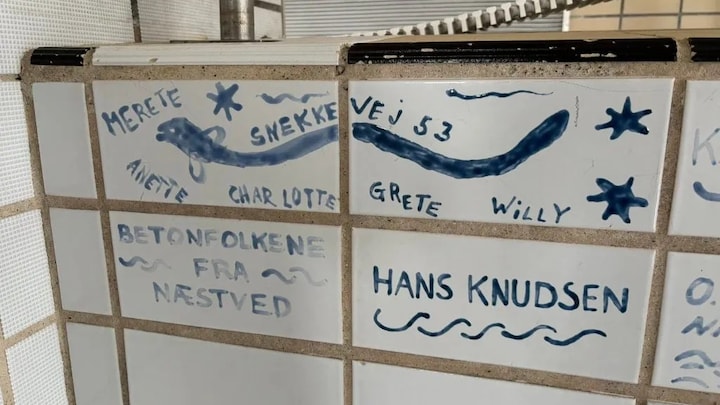 MERETE
SNEKKEVEJ 53
ANETTE
CHARLOTTE
GRETE
WILLY
BETONFOLKENE
FRA
NÆSTVED
HANS KNUDSEN